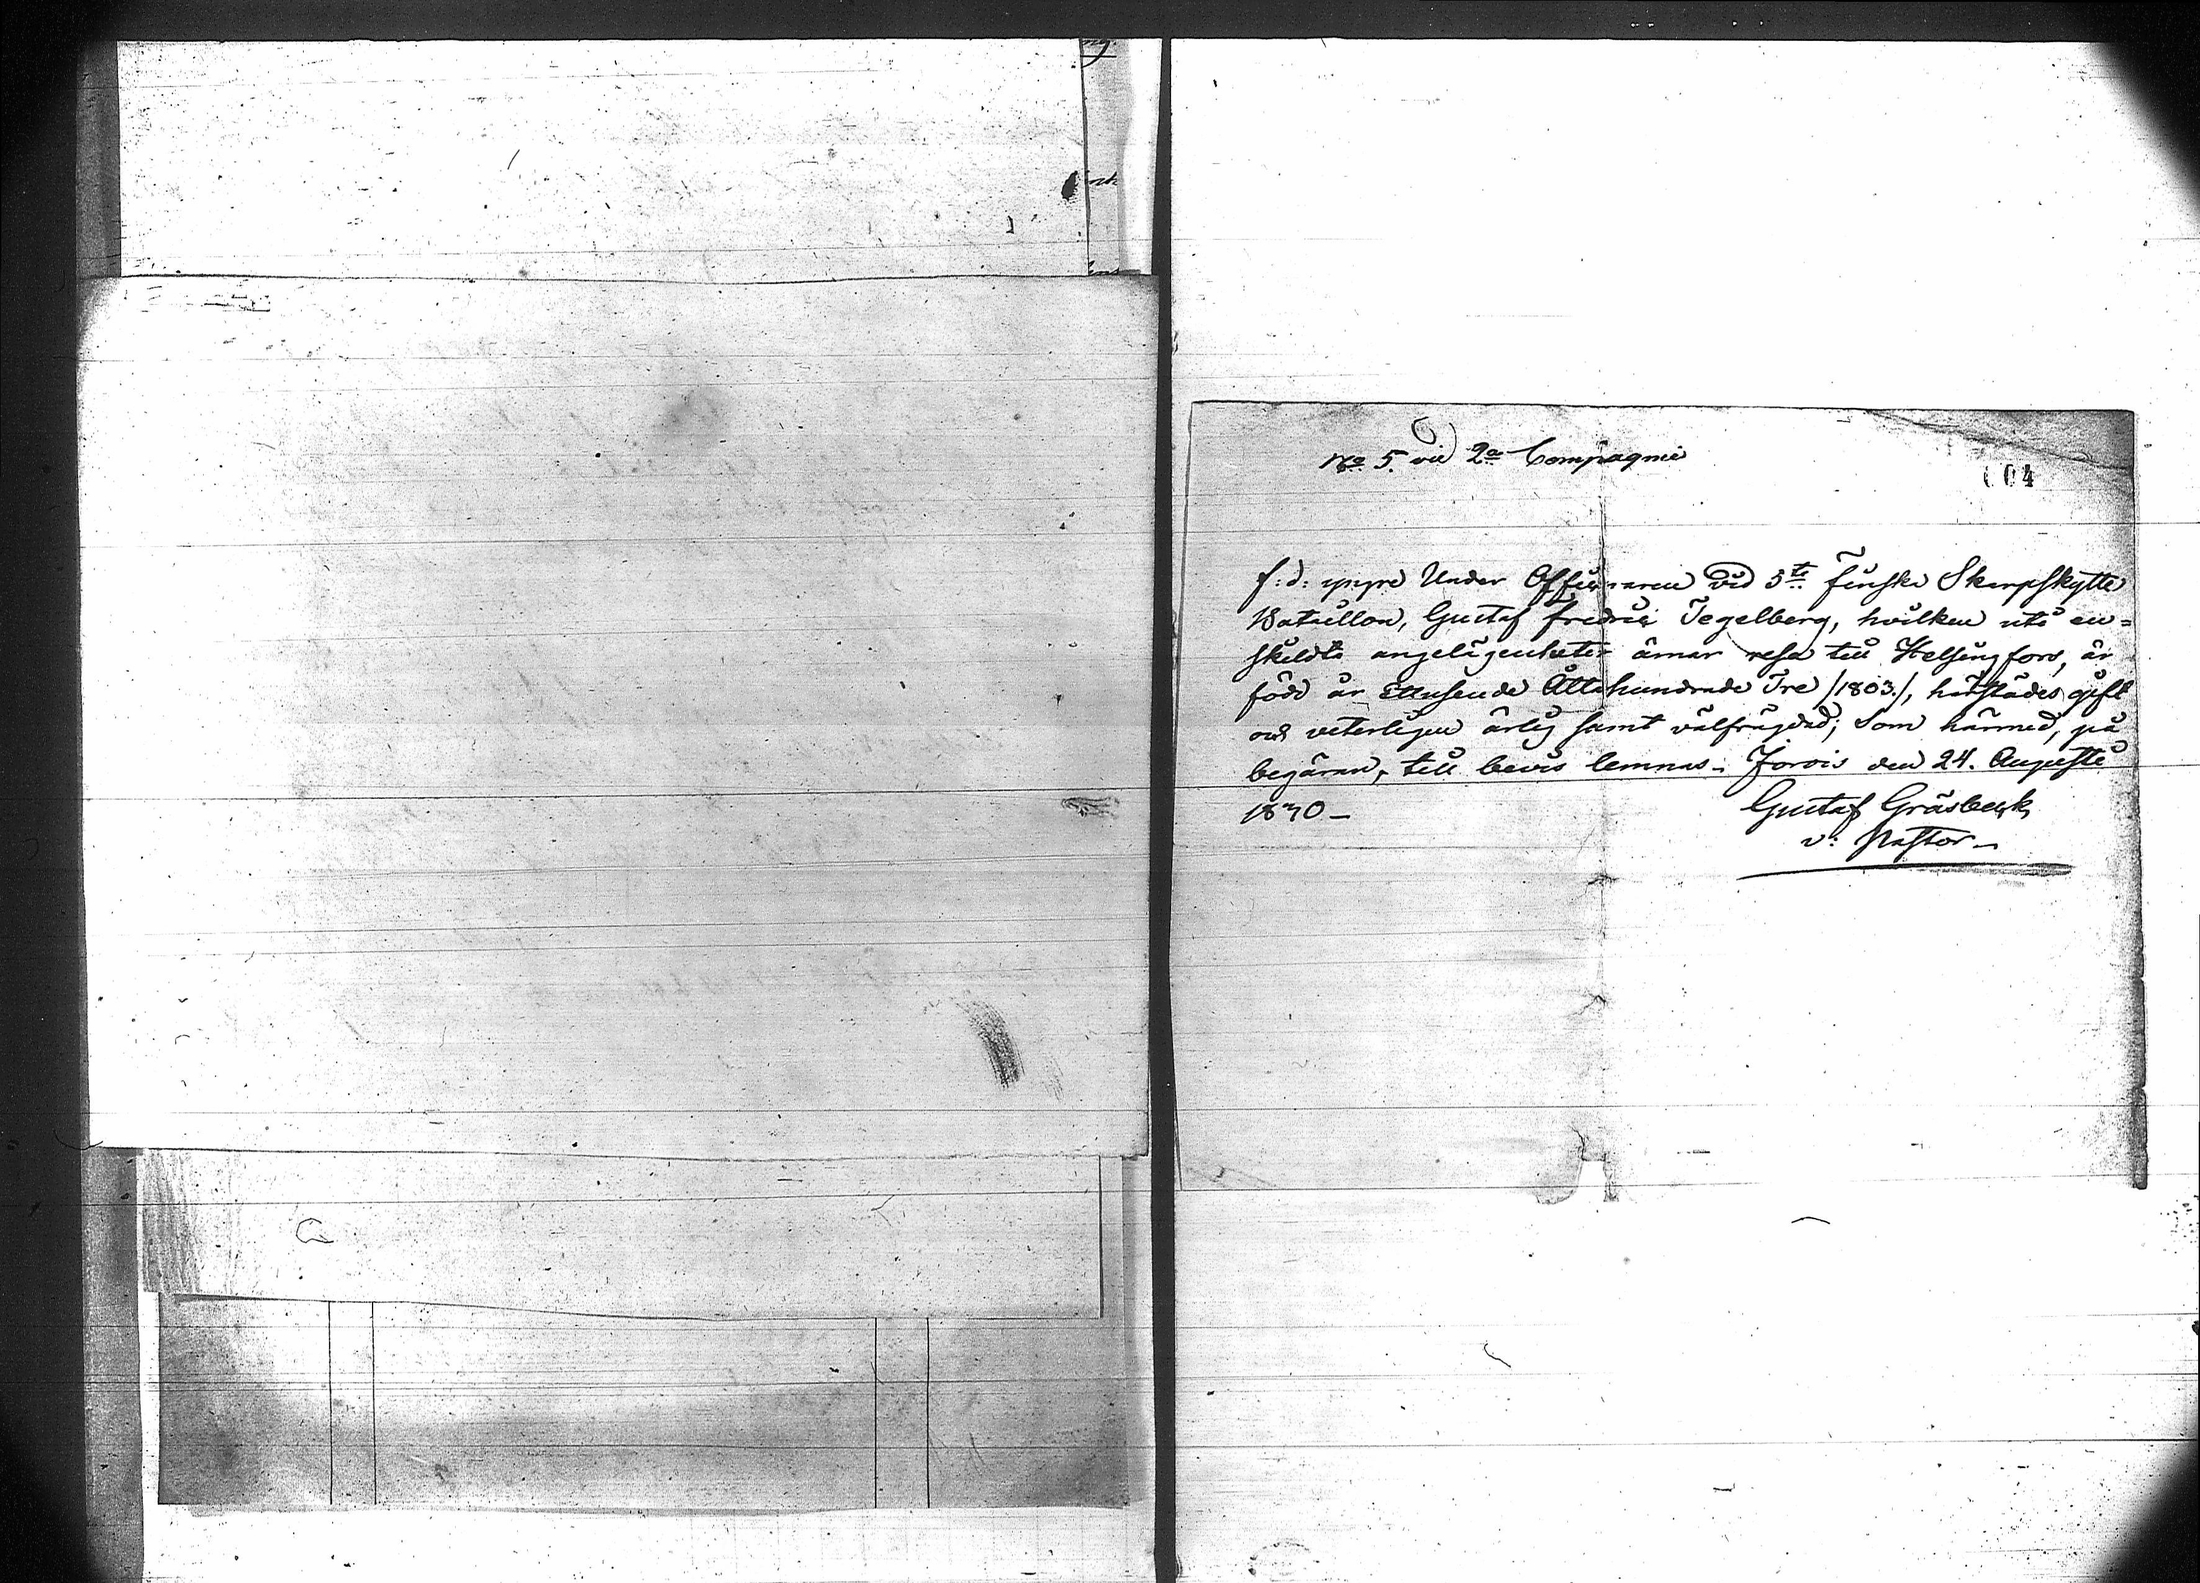 No 5. vid 2a Compagnie
604
f: d: yngre Under Officeraren vid 5te Finska Skarpskytte
Bataillon, Gustaf Fredric Tegelberg, hvilken uti en=
skildta angelägenheter ämar resa till Helsingfors, är
född år Ettusende Åttahundrade Tre /1803./, härstädes gift
och veterligen ärlig samt välfrägdad; Som härmed, på
begäran, till bevis lemnas. Jorois den 24. Augusti
1830 —
Gustaf Gräsbeck
v: Pastor. —